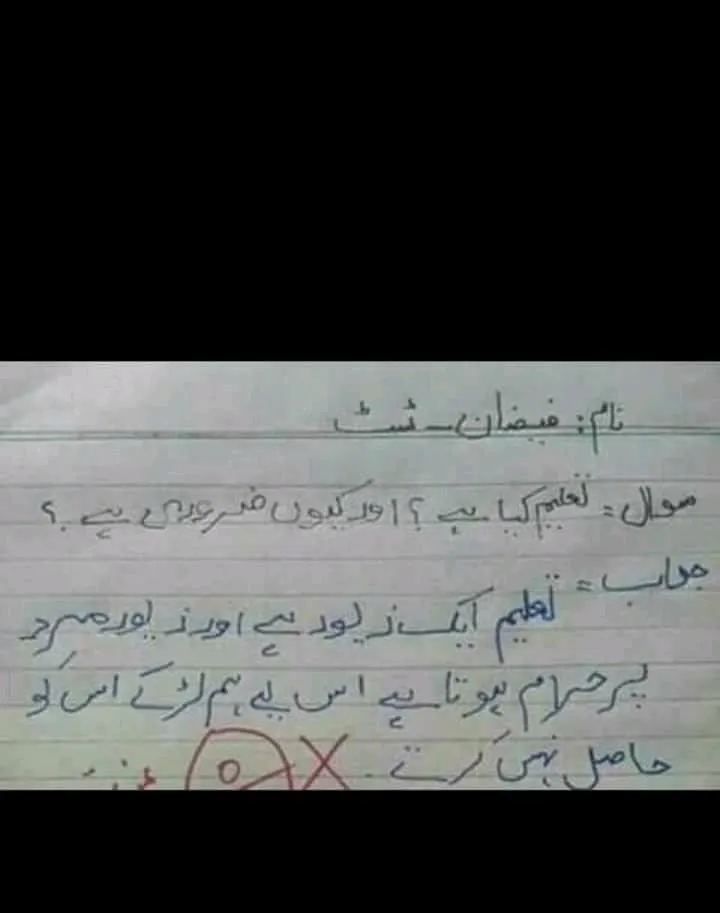 نام: فیضان - ٹسٹ
سوال = تعلیم کیا ہے ؟ اور کیوں ضروری ہے ؟
جواب = تعلیم ایک زیور ہے اور زیور مرد
پر حرام ہوتا ہے اس لیے ہم لڑکے اس کو
حاصل نہیں کرتے -
0